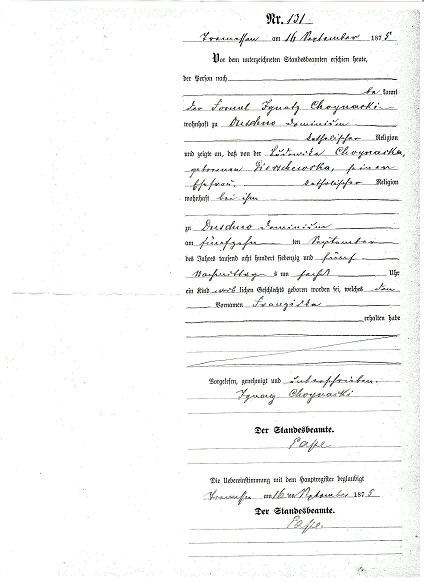 Nr. 131.
Tremessen am 16 September 1875
Vor dem unterzeichneten Standesbeamten erschien heute,
der Person nach
bekannt
der Fornal Ignatz Choynacki
wohnhaft zu Duschno Dominium
katholischer Religion
und zeigte an, daß von der Ludowika Choynacka,
geborenen seiner
Ehefrau, katholischer Religion
wohnhaft bei ihm
zu Duschno Dominium
am fünfzehn ten September
des Jahres tausend acht hundert siebenzig und fünf
Nachmittag s um sechs Uhr
ein Kind weib lichen Geschlechts geboren worden sei, welches den
Vornamen Franziska
erhalten habe
Vorgelesen, genehmigt und unterschrieben.
Ignacy Choynacki
Der Standesbeamte.
Pape
Die Uebereinstimmung mit dem Hauptregister beglaubigt
Tremessen am 16 ten September 1875
Der Standesbeamte.
Pape.